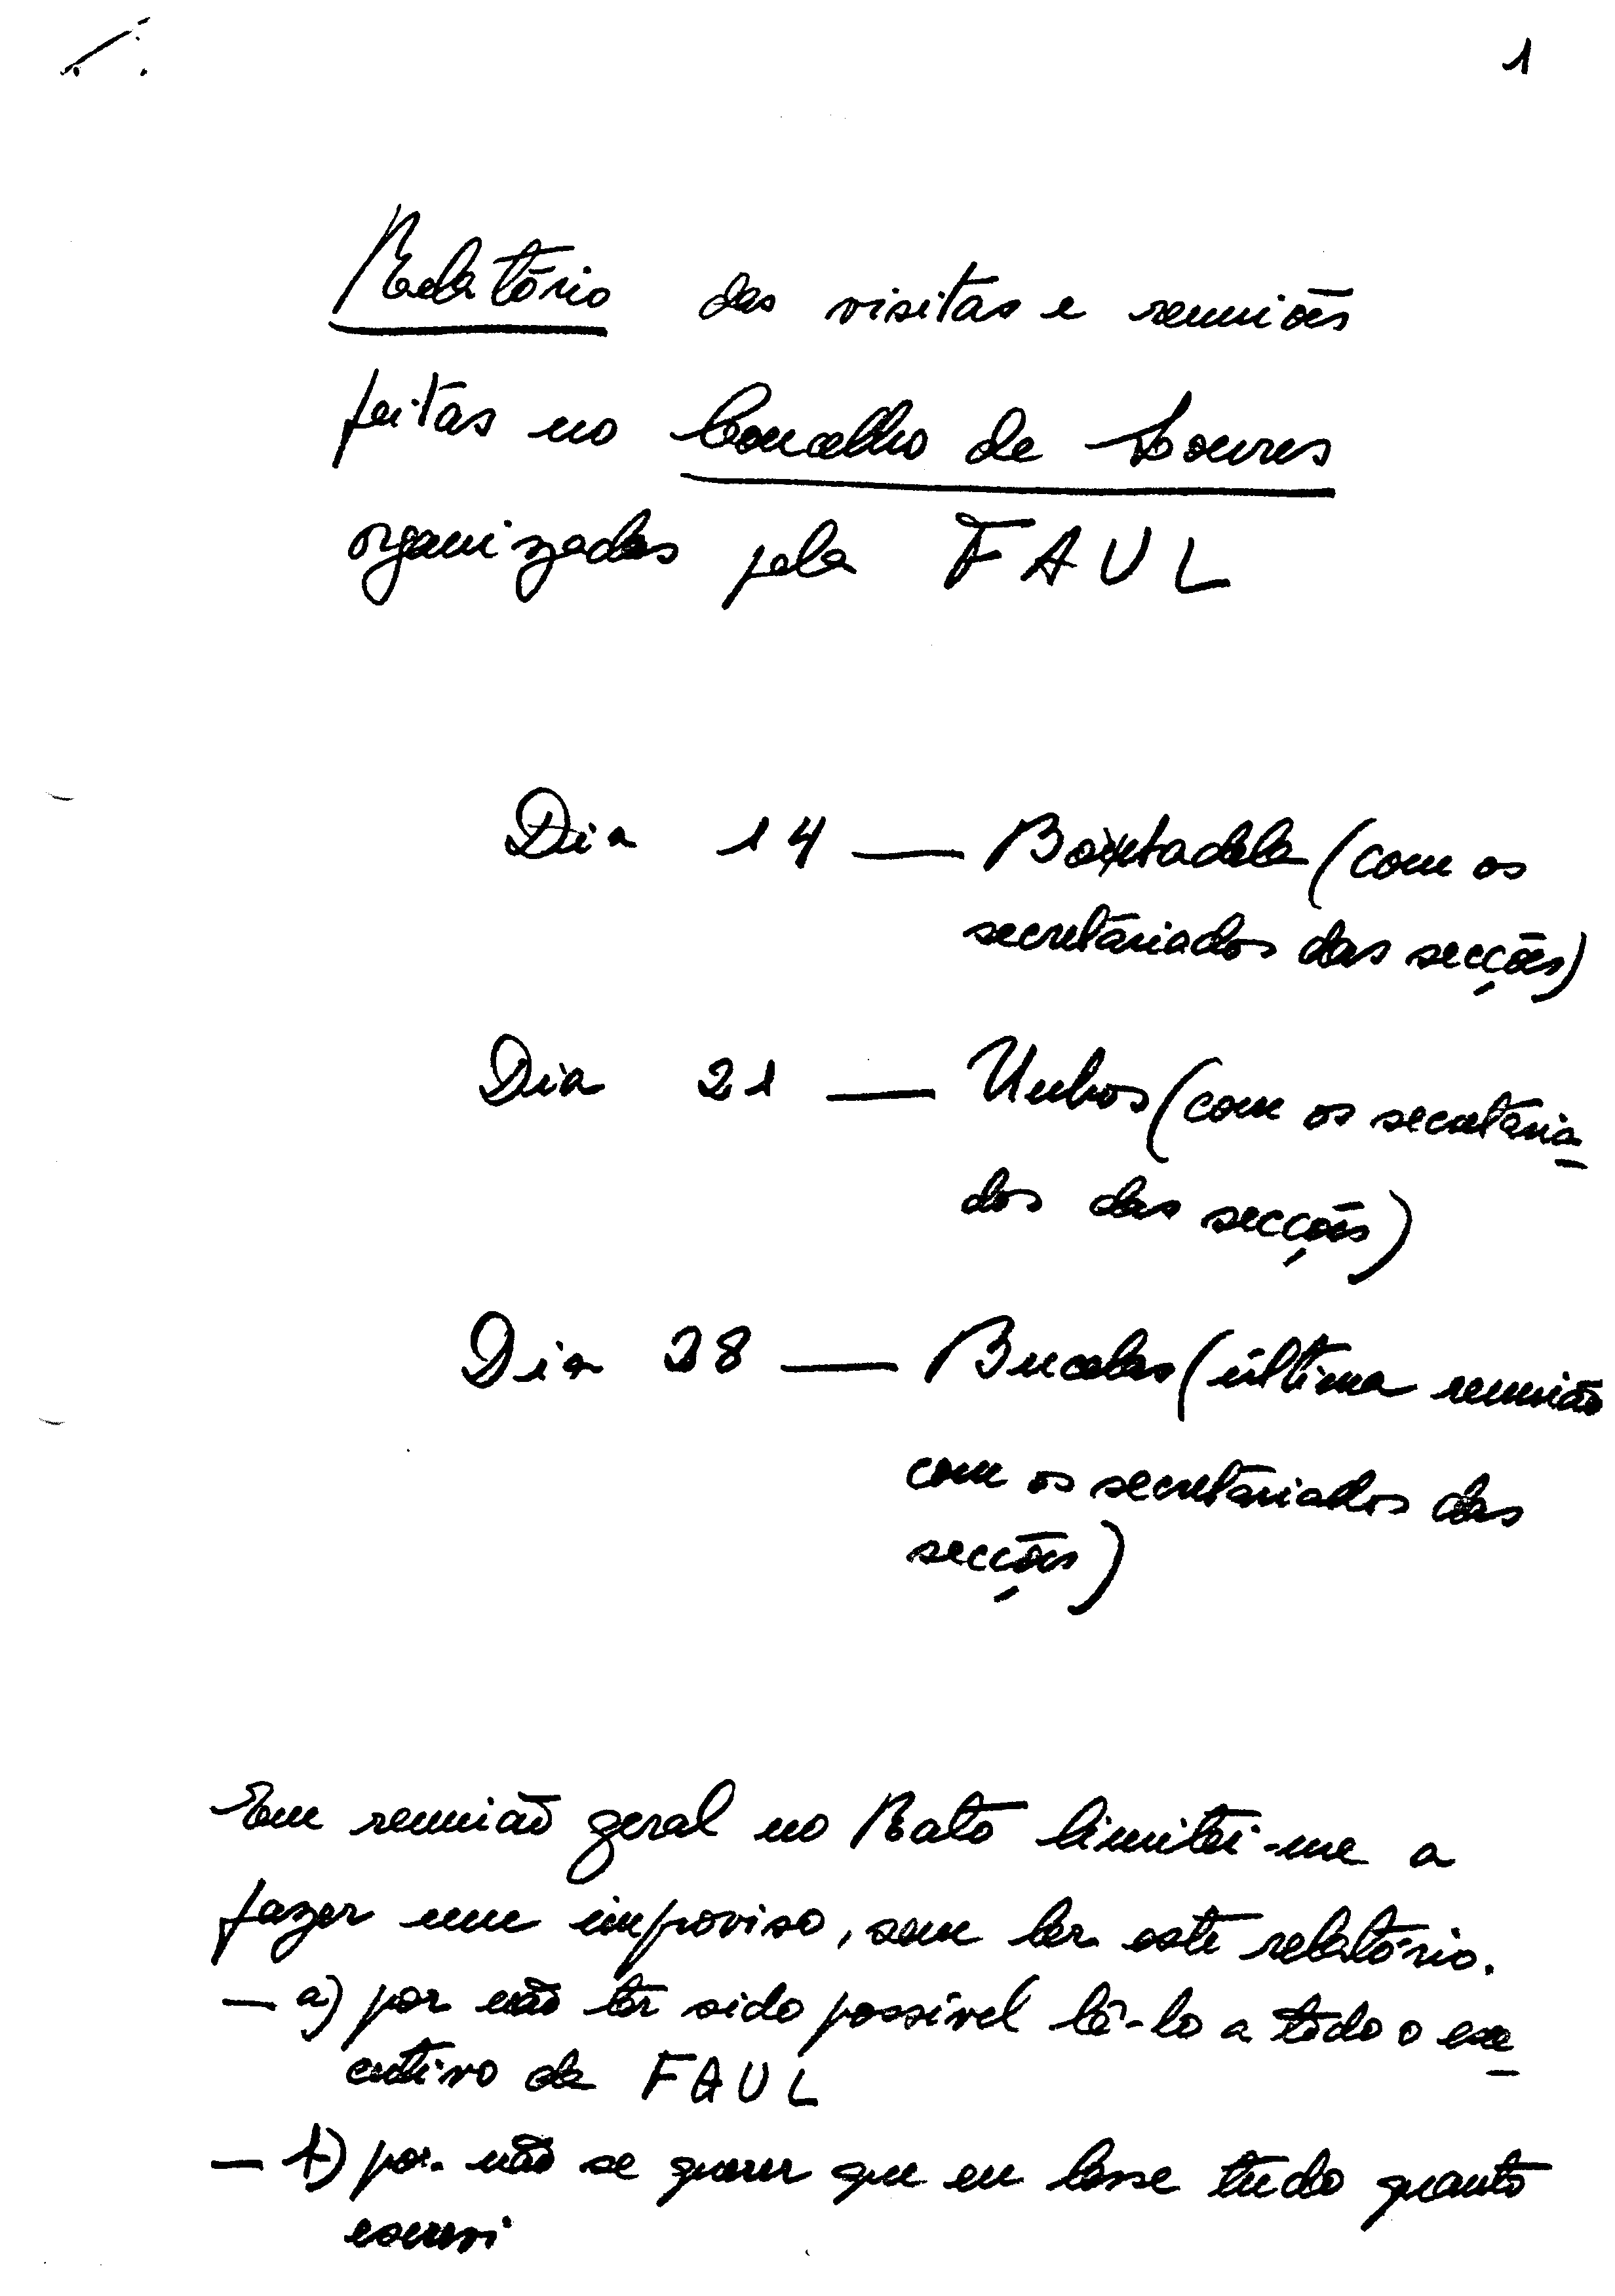 1
Relatório das visitas e reuniões
feitas no Concelho de Loures
organizadas pela FAUL
Dia 14 — Bobadela (com os
secretáriados das secções)
Dia 21 — Unhos (com os secretária-
dos das secções)
Dia 28 — Bucelas (última reunião
com os secretáriados das
secções)
Em reunião geral no Rato limitei-me a
fazer um improviso, sem ler este relatório.
— a) por não ter sido possível lê-lo a todo o exe-
cutivo da FAUL
— b) por não se querer que eu lesse tudo quanto
escrevi